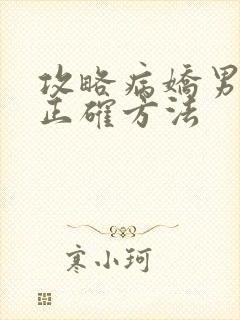 攻略病嬌男
正確方法
寒小珂